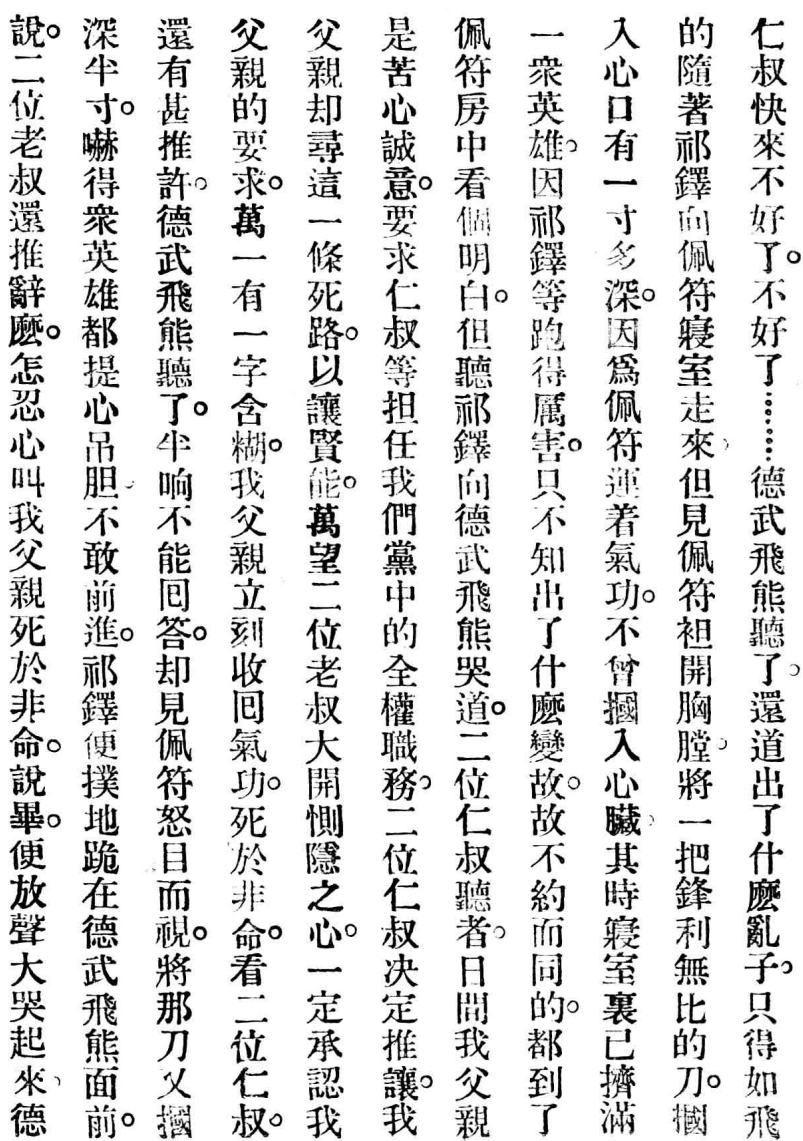 仁叔快來不好了。不好了……德武飛熊聽了。還道出了什麽亂子。只得如飛
的隨著祁鐸向佩符寢室走來。但見佩符袒開胸膛。將一把鋒利無比的刀。摑
入心口有一寸多深。因爲佩符運着氣功。不曾摑入心臟。其時寢室裏已擠滿
一衆英雄。因祁鐸等跑得厲害。只不知出了什麽變故。故不約而同的。都到了
佩符房中看個明白。但聽祁鐸向德武飛熊哭道。二位仁叔聽者。日間我父親
是苦心誠意。要求仁叔等担任我們黨中的全權職務。二位仁叔决定推讓。我
父親却尋這一條死路。以讓賢能。萬望二位老叔大開惻隱之心。一定承認我
父親的要求。萬一有一字含糊。我父親立刻收囘氣功。死於非命。看二位仁叔。
還有甚推許。德武飛熊聽了。半晌不能囘答。却見佩符怒目而視。將那刀又摑
深半寸。嚇得衆英雄都提心吊胆。不敢前進。祁鐸便撲地跪在德武飛熊面前。
說。二位老叔還推辭麽。怎忍心叫我父親死於非命。說畢。便放聲大哭起來。德